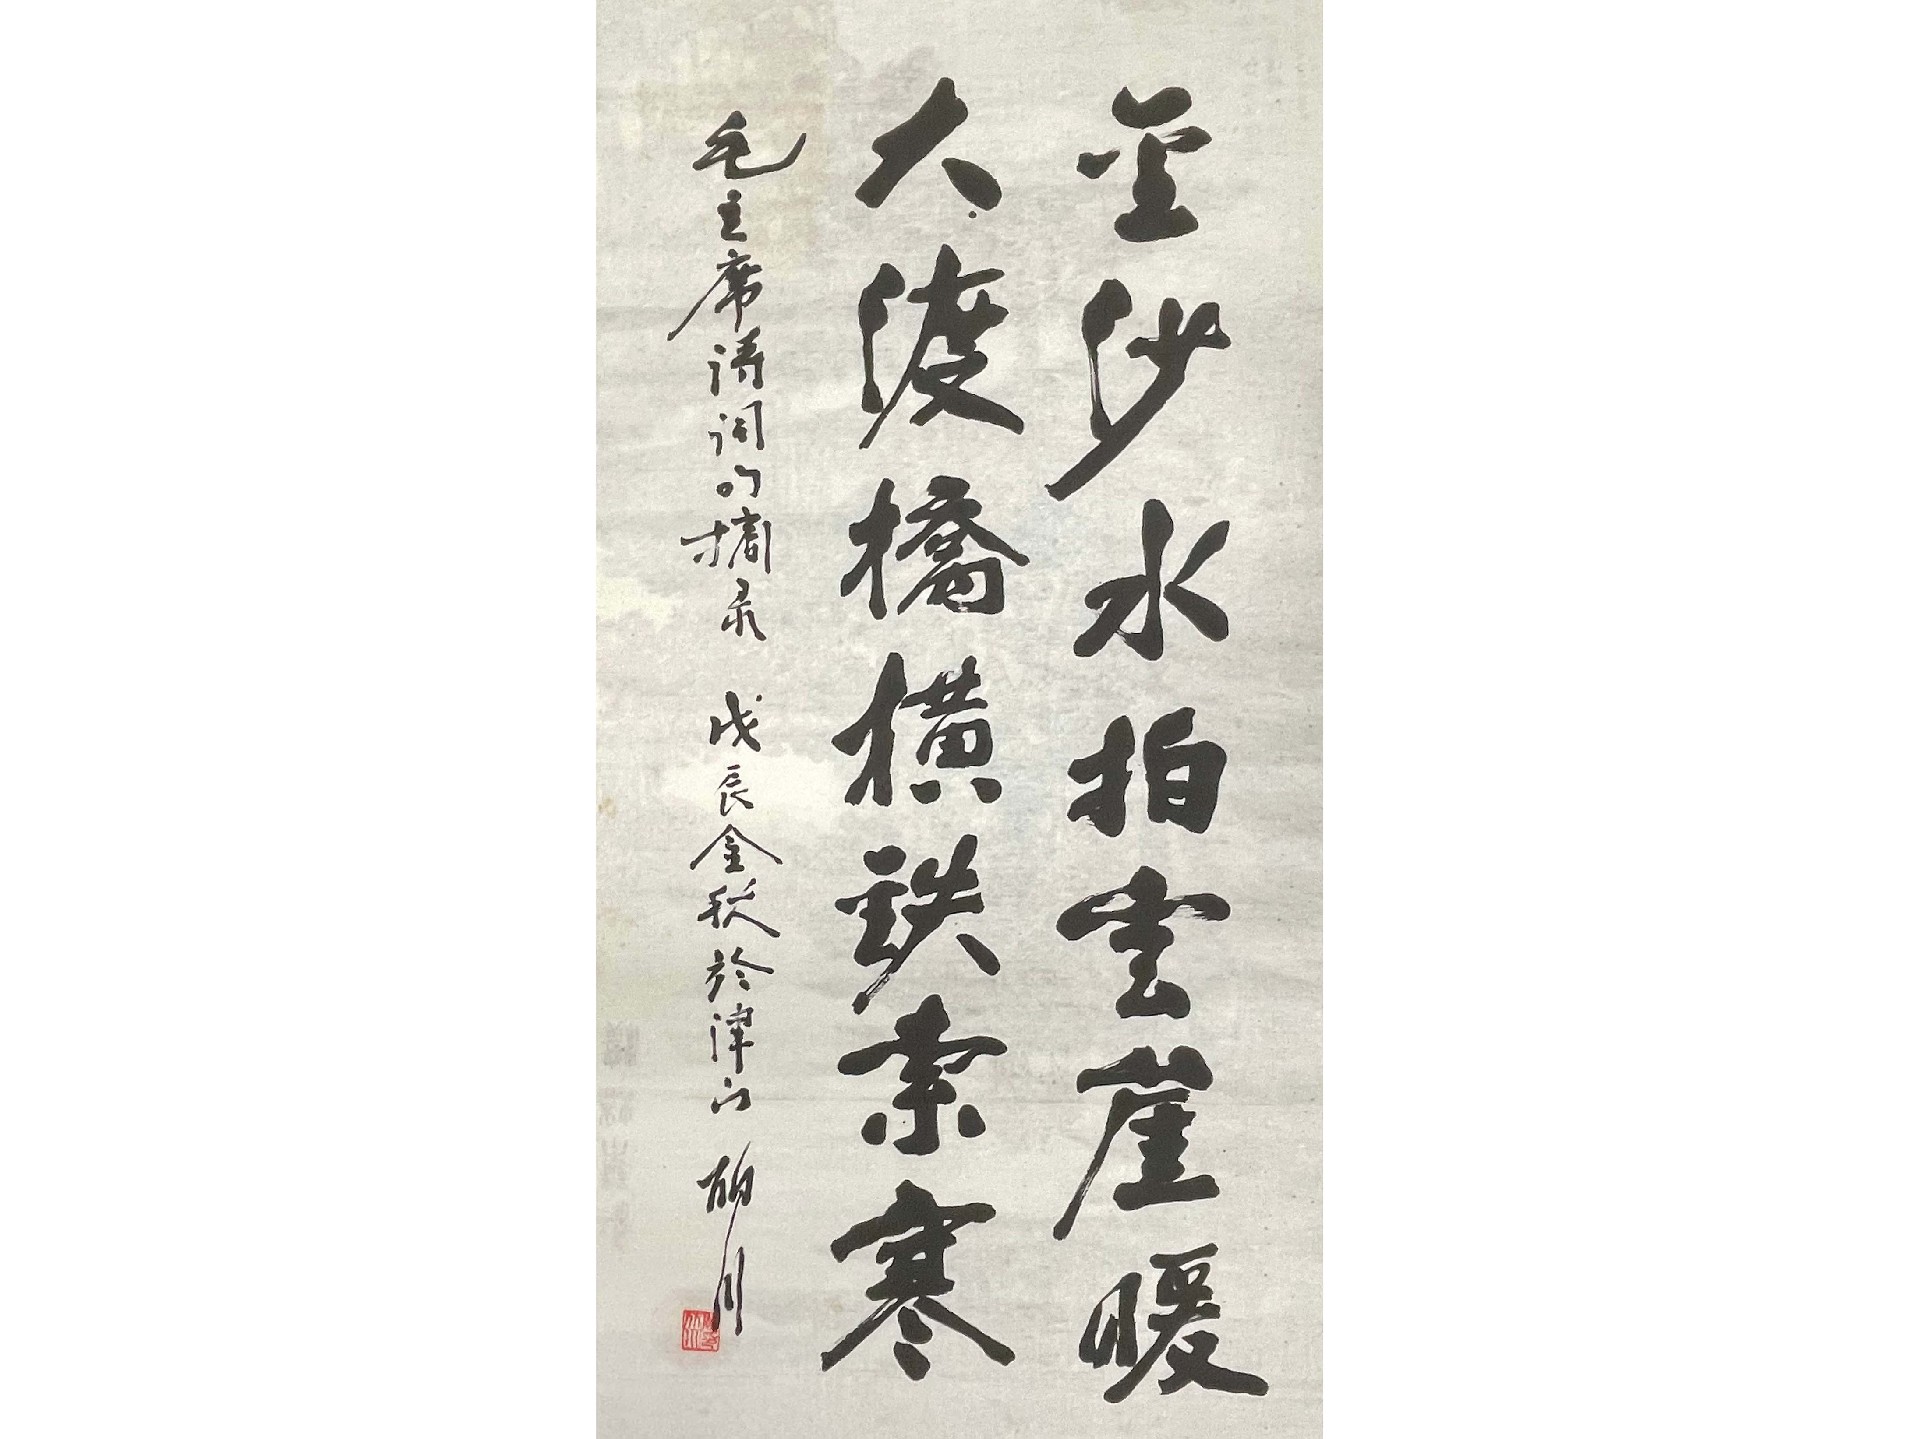 金沙水拍雲崖暖
大渡橋橫鉄索寒
毛主席诗词句摘录 戊辰金秋於津门